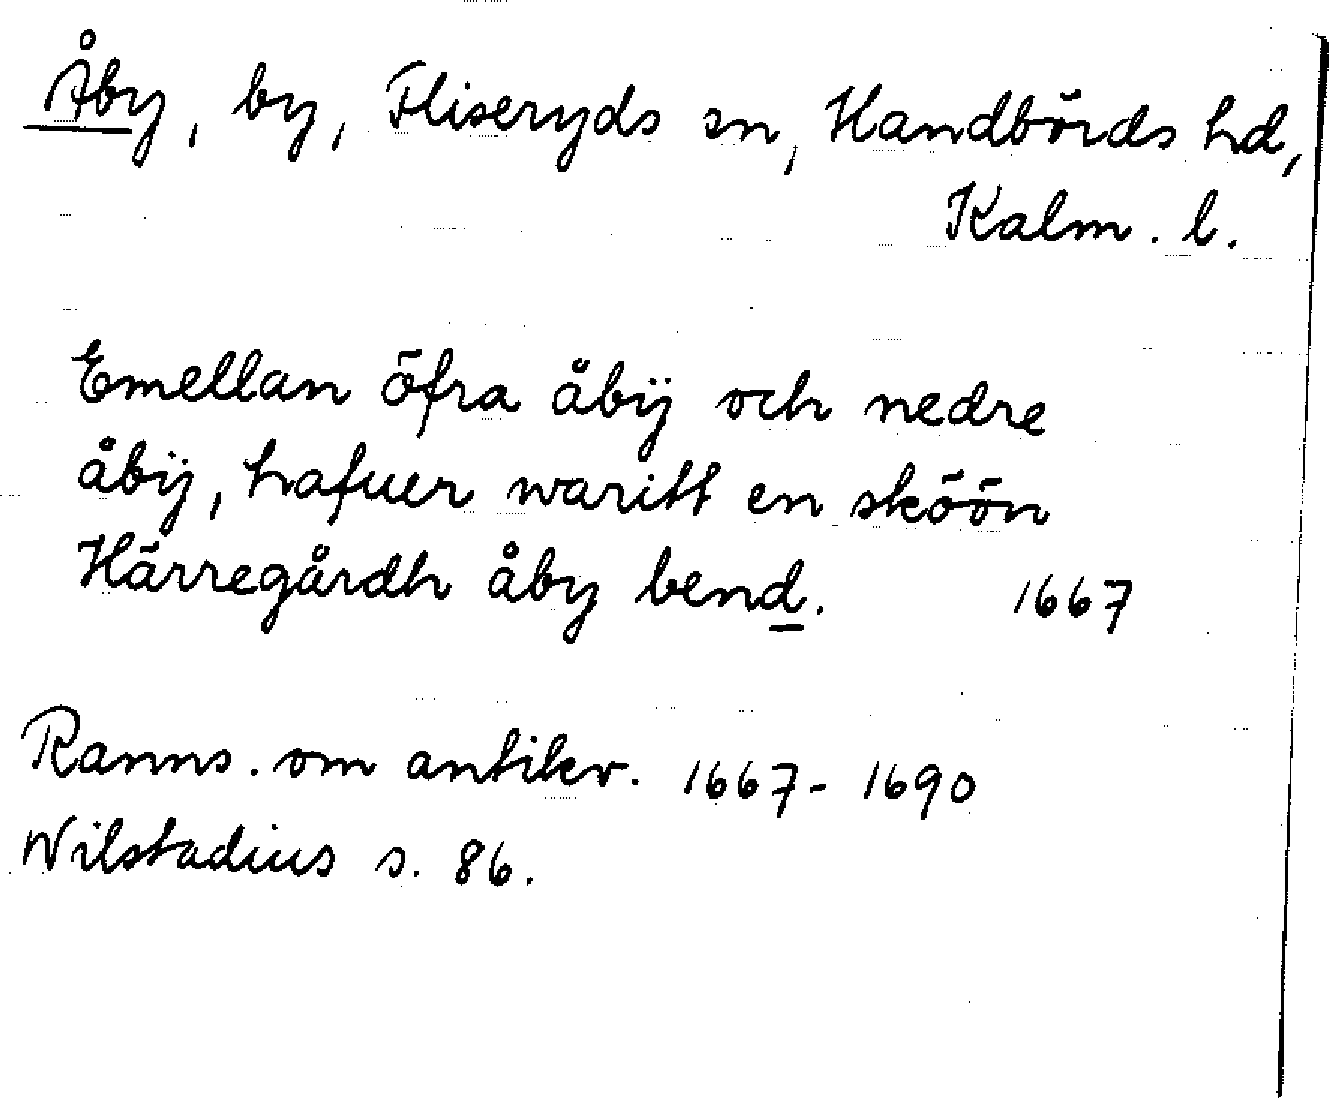 Åby, by, Fliseryds sn, Handbörds hd,
Kalm. l.
Emellan öfra åbÿ och nedre
åbÿ, hafuer waritt en sköön
Härregårdh åby bend. 1667
Ranns. om antikv. 1667-1690
Wilstadius s. 86.